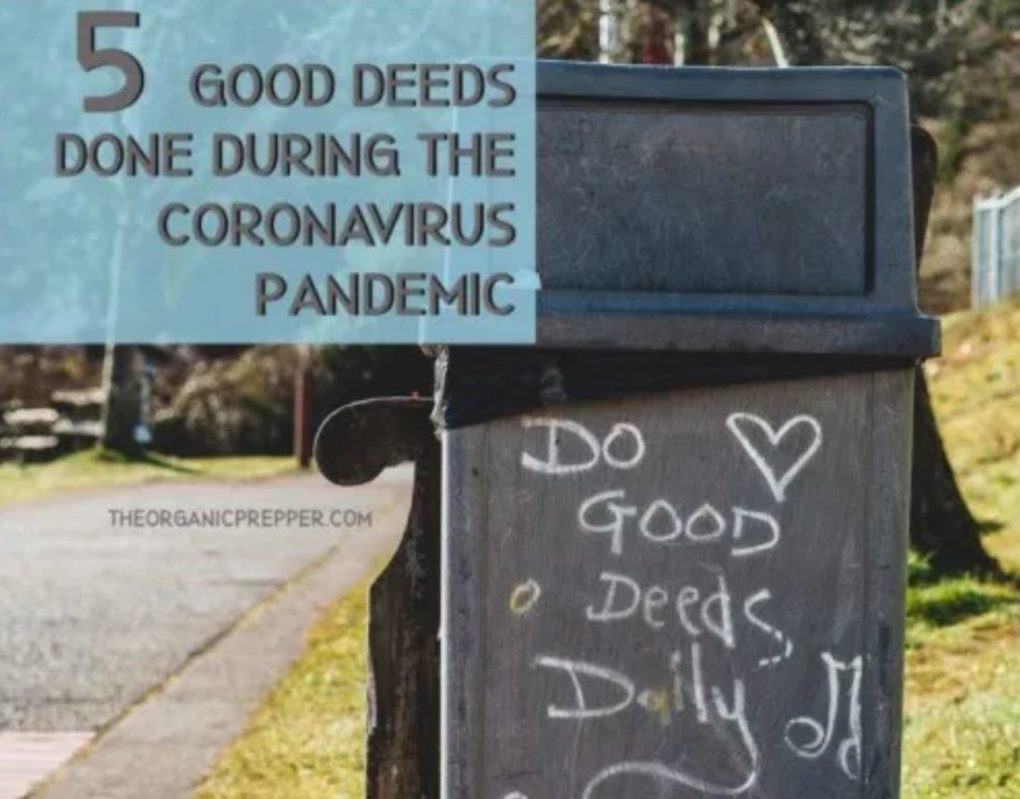 5 GOOD DEEDS
DONE DURING THE
CORONAVIRUS
PANDEMIC
THEORGANICPREPPER.COM
DO
GOOD
Deeds
Daily